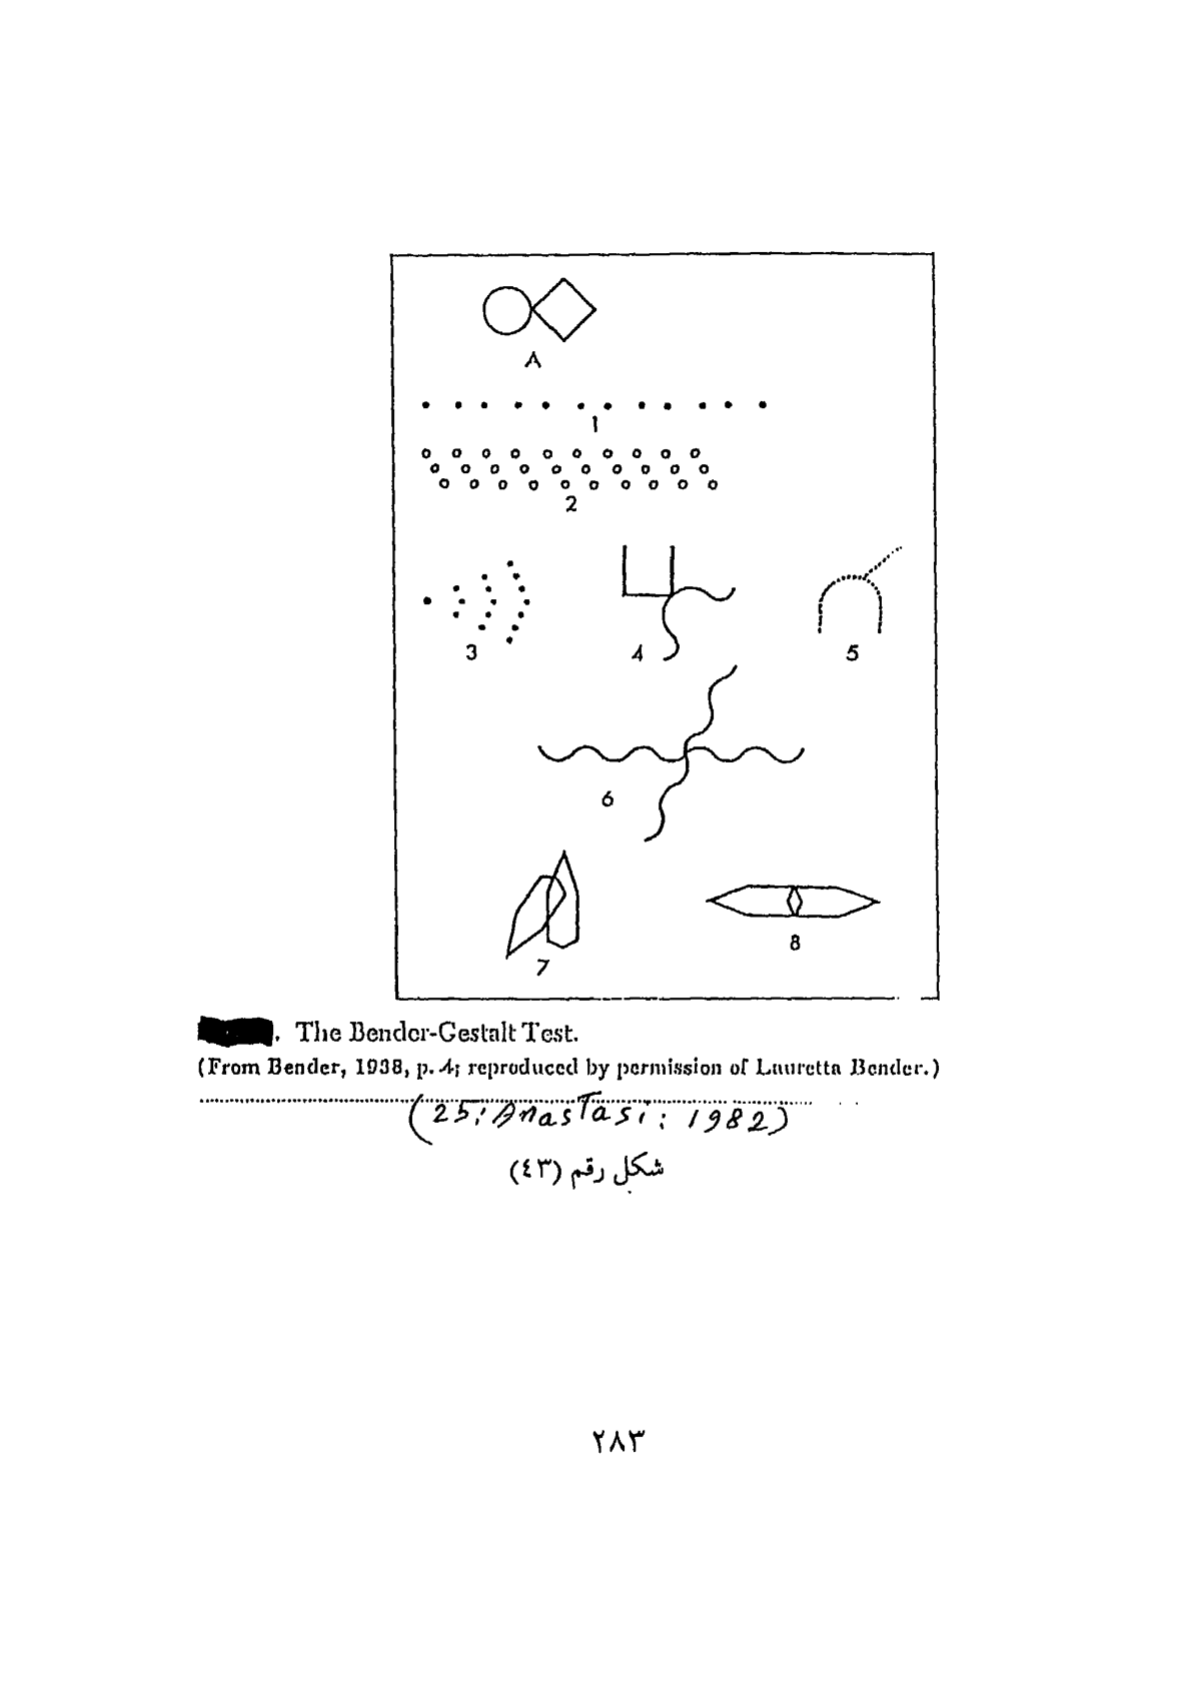 A
1
2
3 4 5
6
7 8
. The Bender-Gestalt Test.
(From Bender, 1938, p. 4; reproduced by permission of Lauretta Bender.)
(25: Anastasi: 1982)
شكل رقم (٤٣)
٢٨٣